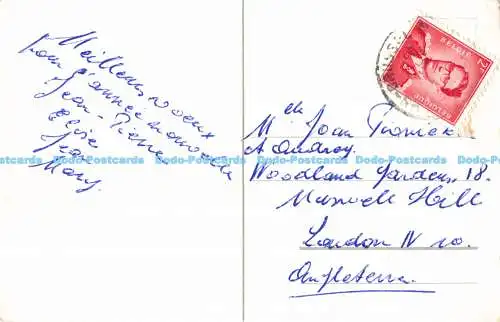 Meilleurs voeux
pour l'année nouvelle
Jean-Pierre
Elvie
Jean
Mary.
Melle Joan
et Audrey.
Woodland Gardens 18.
Muswell Hill
London N 10.
Angleterra.
BELGIQUE
BELGIE
Dodo-Postcards Dodo-Postcards Dodo-Postcards Dodo-Postcards Dodo-Postcards